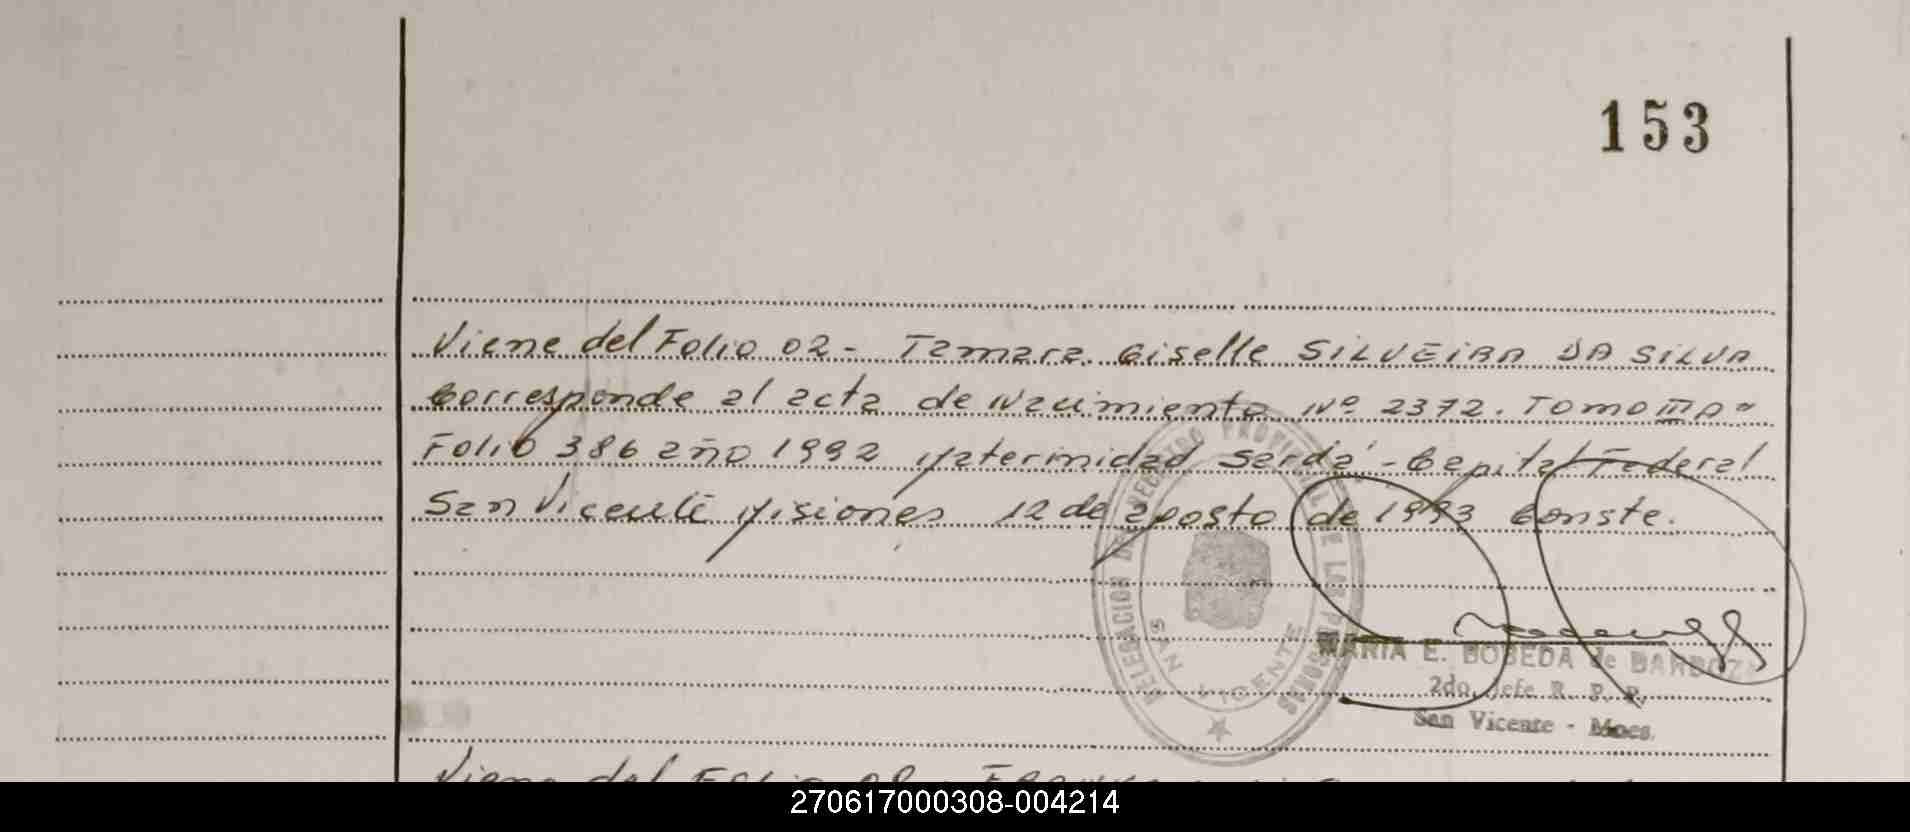 153
Viene del Folio 02 - Tamara Giselle SILVEIRA DA SILVA
Corresponde al acta de Nacimiento Nº 2372. TOMO III A-
Folio 386 año 1992 Materinidad Sardá - Capital Federal
San Vicente Misiones 12 de agosto de 1993 Conste.
DELEGACION DEL REGISTRO PROVINCIAL DE LAS PERSONAS
SAN VICENTE
MARIA E. BOBEDA de BARBOZA
2do. Jefe R. P. P.
San Vicente - Mnes.
Viene del Folio
270617000308-004214